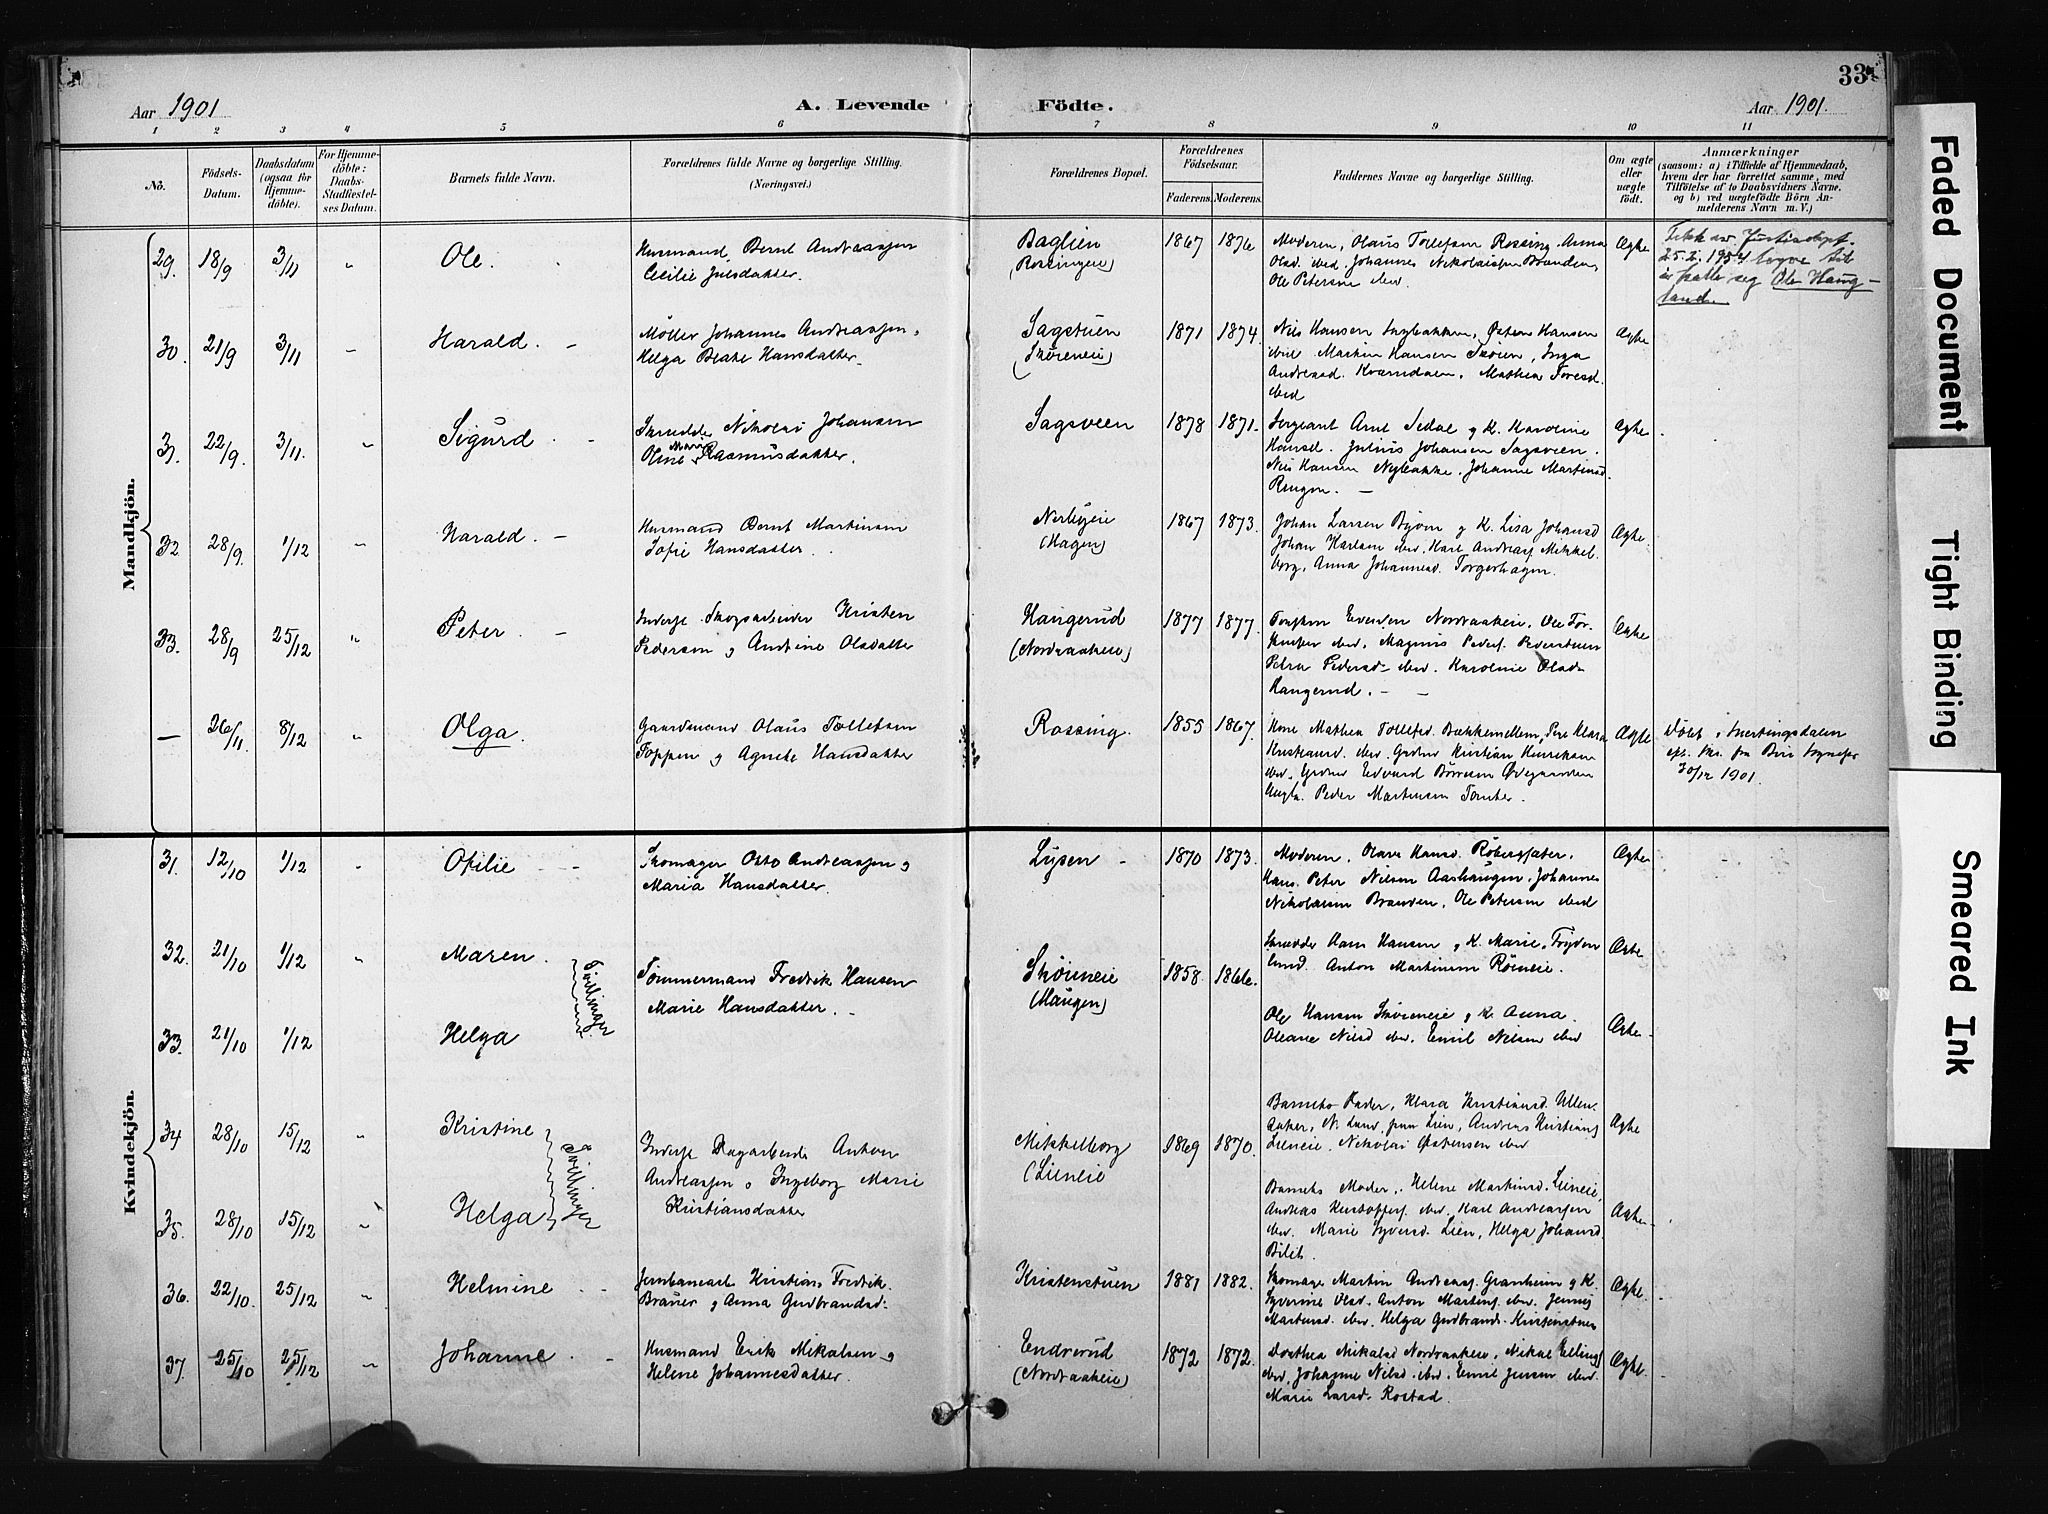 33
Aar 1901
A. Levende
Födte.
Aar 1901.
1 2 3 4 5 6 7 8 9 10 11
No.
Födsels-
Datum.
Daabsdatum
(ogsaa for
Hjemme-
döbte).
For Hjemme-
döbte:
Daabs-
Stadfæstel-
ses Datum.
Barnets fulde Navn.
Forældrenes fulde Navne og borgerlige Stilling.
(Næringsvei.)
Forældrenes Bopæl.
Forældrenes
Födselsaar.
Faderens. Moderens.
Faddernes Navne og borgerlige Stilling.
Om ægte
eller
uægte
födt.
Anmærkninger
(saasom: a) i Tilfælde af Hjemmedaab,
hvem der har forrettet samme, med
Tilföielse af to Daabsvidners Navne.
og b) ved uægtefödte Börn An-
melderens Navn m. V.)
Mandkjön.
29. 18/9 3/11 " Ole
Husmand Bernt Andreassen
Cecilie Julsdatter.
Baglien
(Rossingen)
1867 1876
Moderen, Olaus Tollefsen Rossing, Anna
Olsd. ibid, Johannes Nikolaisen Branden,
Ole Petersen ibid.
Ægte
Fikk av Justisdept.
25.2.1954 løyve til
å kalle seg Ole Haug-
land.
30. 21/9 3/11 " Harald. -
Møller Johannes Andreassen,
Helga Beate Hansdatter.
Sagstuen
(Skøreneie)
1871 1874.
Nils Hansen Nybakken, Østen Hansen
ibid. Martin Hansen Skøren, Inga
Andreasd. Kværndalen, Mathea Toresd.
ibid
Ægte
31. 22/9. 3/11. " Sigurd -
Skrædder Nikolai Johansen
Oline Marie Rasmusdatter.
Sagsveen
1878 1871.
Sergeant Arne Sedal g K. Karoline
Hansd. Julius Johansen Sagsveen.
Nils Hansen Nybakke, Johanne Martinsd.
Ringen. -
Ægte
32 28/9. 1/12 " Harald. -
Husmand Bernt Martinsen
Sofie Hansdatter.
Nerbyeie
(Hagen)
1867 1873.
Johan Larsen Byöm g K. Lisa Johansd
Johan Karlsen ibid, Karl Andreass Mikkel-
borg, Anna Johannesd. Torgerhagen.
Ægte.
33. 28/9 25/12 " Peter. -
Inderst Skogsarbeider Kristen
Pedersen g Andrine Olsdatter
Haugerud
(Nordraakeie)
1877 1877.
Evensen Nordraakeie, Ole Tor-
ibid, Magnus Peders.
Petra Pedersd. ibid. Karoline Olsd.
Haugerud. -
Ægte
- 26/11. 8/12 " Olga.
Gaardmand Olaus Tollefsen
Toppen g Agnethe Hansdatter
Rossing.
1855 1867.
Kone Mathea Tollefsd. Bækkemellem, Pige Klara
Kristiansd. ibid. Grdbr Kristian Henriksen
ibid, Grdbr Edvard Børresen Ødegaarden
Ungk. Peder Martinsen Tomter.
Ægte
Döbt i Snertingdalen
efter fra Biri Sognepr
30/12 1901.
Kvindekjön.
31. 12/10 1/12 " Otilie -
Skomager Otto Andreassen g
Maria Hansdatter.
Lysen -
1870 1873.
Moderen, Olava Hansd. Röbergsæter,
Hans Peter Nilsen Aashaugen, Johannes
Nikolaisen Branden, Ole Petersen ibid
Ægte
32. 21/10 1/12 " Maren.
Tvillinger
Tømmermand Fredrik Hansen
Marie Hansdatter. -
Skøieneie
(Haugen)
1858 1866.
Skrædder Hans Hansen g K. Marie, Fryden-
lund. Anton Martinsen Røineie.
Ægte
33. 21/10 1/12 Helga
Ole Hansen Skøieneie g K. Anna.
Oleane Nilsd ibid. Emil Nilsen ibid
Ægte-
34 28/10 15/12 " Kristine
Tvillinger
Inderst Dagarbeider Anton
Andreassen g Ingeborg Marie
Kristiansdatter
Mikkelborg
(Lieneie
1869 1870.
Barnets Fader, Klara Kristiansd. Ullen-
aaker, N. Lund, Lien, Andreas Kristians
Lieneie. Nikolai Østensen ibid
Ægte
35. 28/10 15/12 " Helga
Barnets Moder, Helene Martinsd. Lieneie,
Andreas Kristoffers ibid, Karl Andreassen
ibid. Marie Syversd. Lien, Helga Johansd.
Bilit.
Ægte-
36. 22/10. 25/12 " Helmine -
Jernbanearb. Kristian Fredrik.
Braüer g Anna Gudbrandsd.
Kristenstuen
1881 1882.
Skomager Martin Andreass. Granheim g K.
Syverine Olsd. Anton Martins. ibid. Jenny
Martinsd. ibid. Helga Gudbrands. Kristenstuen
Ægte.
37. 25/10 25/12 " Johanne -
Husmand Erik Mikalsen g
Helene Johannesdatter.
Endrerud
(Nordraakeie)
1872 1872.
Dorthea Mikalsd Nordraakeie, Mikal Ellings
ibid, Johanne Nilsd. ibid. Emil Jensen ibid.
Marie Larsd. Rostad.
Ægte.
Faded Document
Tight Binding
Smeared Ink